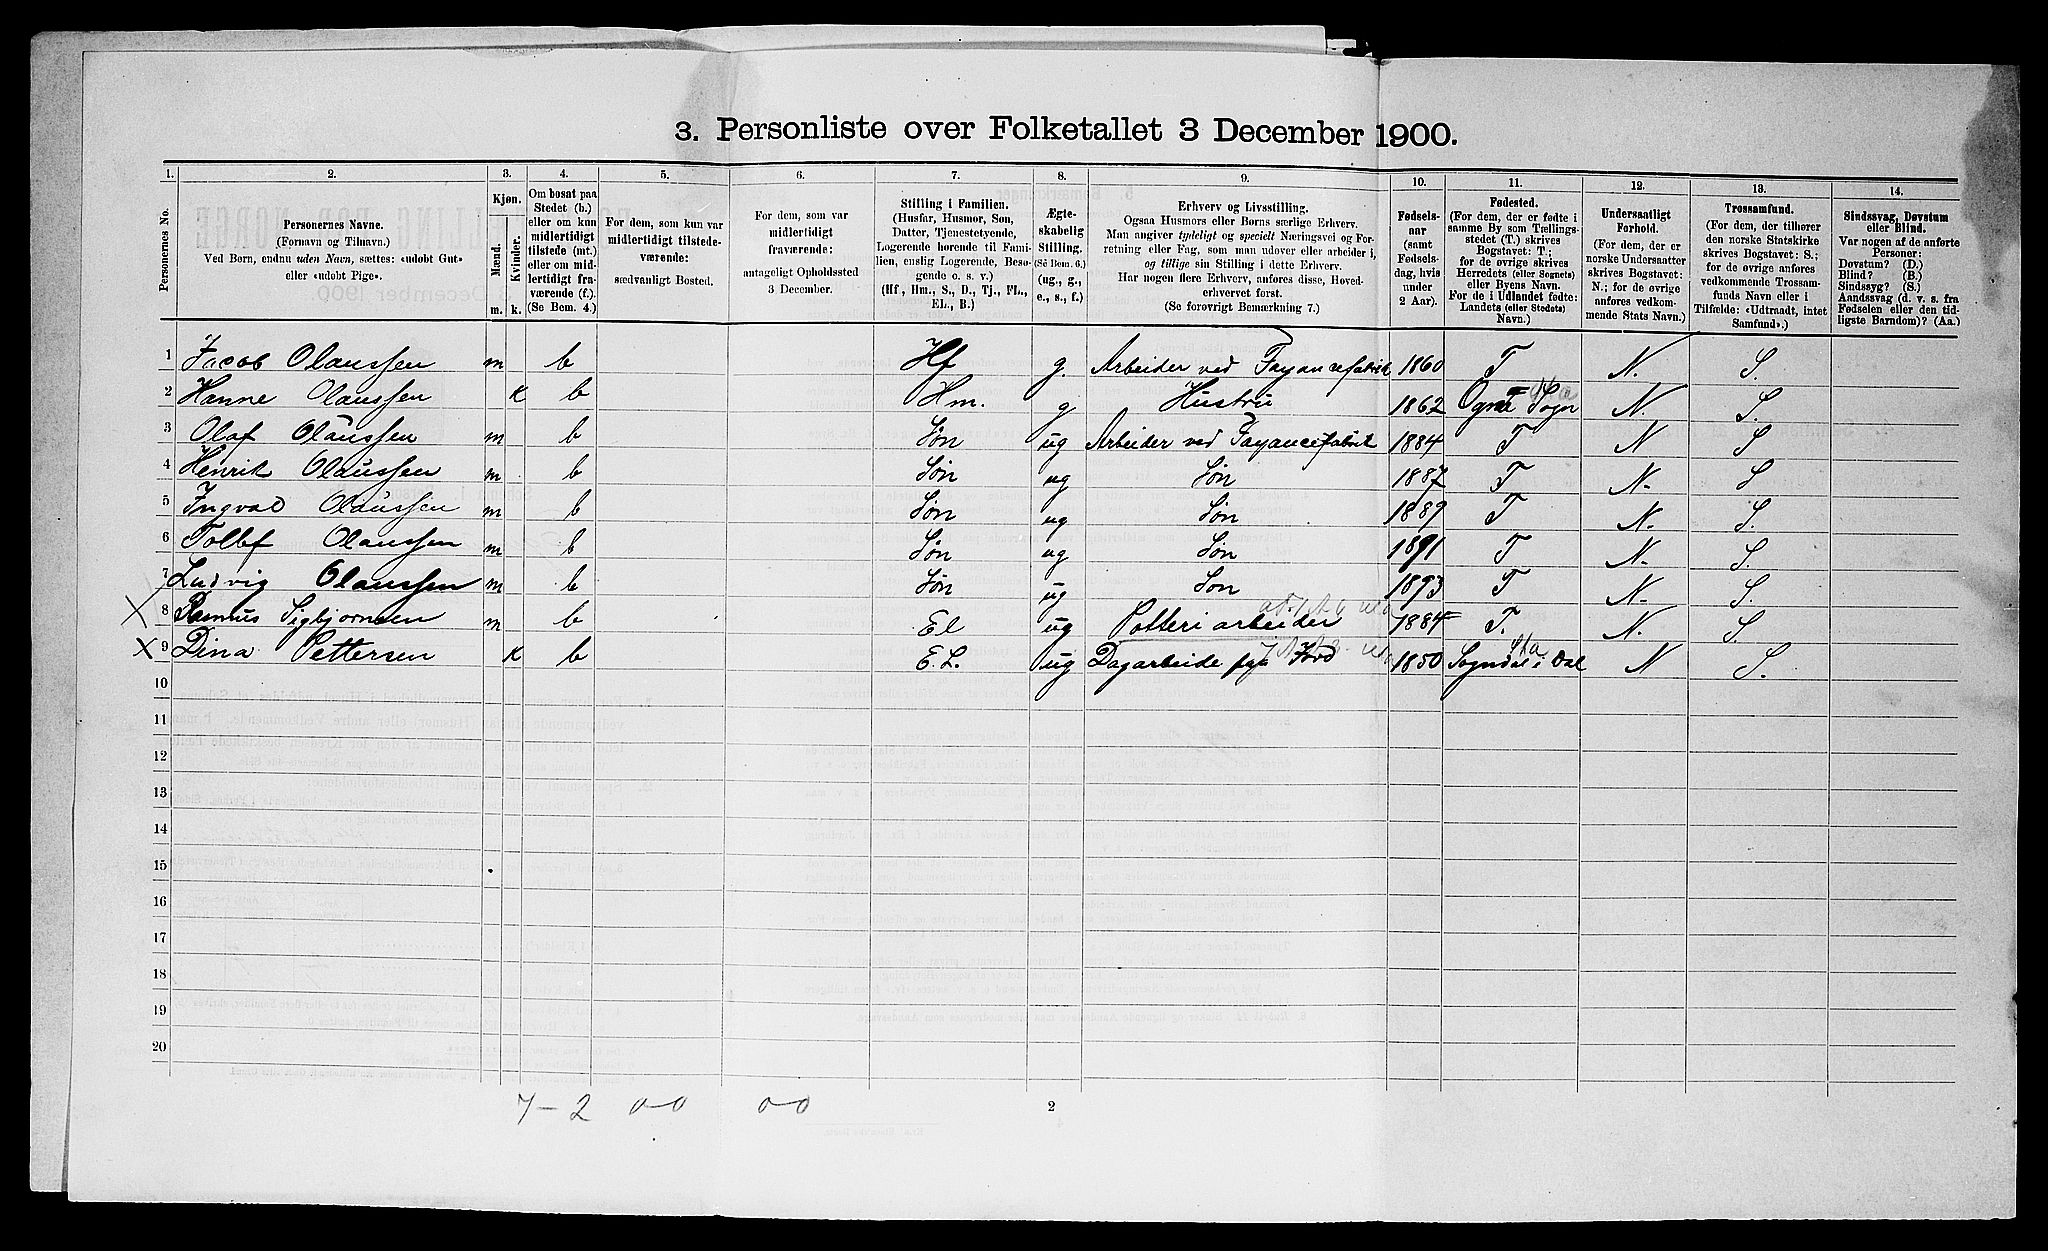 3. Personliste over Folketallet 3 December 1900.
1. 2. 3. 4. 5. 6. 7. 8. 9. 10. 11. 12. 13. 14.
Personernes No.
Personernes Navne.
(Fornavn og Tilnavn.)
Ved Børn, endnu uden Navn, sættes: «udobt Gut»
eller «udobt Pige».
Kjøn.
Mænd.
Kvinder.
m. k.
Om bosat paa
Stedet (b.)
eller om kun
midlertidigt
tilstede (mt.)
eller om mid-
lertidigt fra-
værende (f.).
(Se Bem. 4.)
For dem, som kun var
midlertidigt tilstede-
værende:
sædvanligt Bosted.
For dem, som var
midlertidigt
fraværende:
antageligt Opholdssted
3 December.
Stilling i Familien.
(Husfar, Husmor, Søn,
Datter, Tjenestetyende,
Logerende hørende til Fami-
lien, enslig Logerende, Besø-
gende o. s. v.)
(Hf., Hm., S., D., Tj., FL.,
EL., B.)
Ægte-
skabelig
Stilling.
(Se Bem. 6.)
(ug., g.,
e., s., f.)
Erhverv og Livsstilling.
Ogsaa Husmors eller Børns særlige Erhverv.
Man angiver tydeligt og specielt Næringsvei og For-
retning eller Fag, som man udover eller arbeider i,
og tillige sin Stilling i dette Erhverv.
Har nogen flere Erhverv, anføres disse, Hoved-
erhvervet først.
(Se forøvrigt Bemærkning 7.)
Fødsels-
aar
(samt
Fødsels-
dag, hvis
under
2 Aar).
Fødested.
(For dem, der er fødte i
samme By som Tællings-
stedet (T.) skrives
Bogstavet: T.;
for de øvrige skrives
Herredets (eller Sognets)
eller Byens Navn.
For de i Udlandet fødte:
Landets (eller Stedets)
Navn.)
Undersaatligt
Forhold.
(For dem, der er
norske Undersaatter
skrives Bogstavet:
N.; for de øvrige
anføres vedkom-
mende Stats Navn.)
Trossamfund.
(For dem, der tilhører
den norske Statskirke
skrives Bogstavet: S.;
for de øvrige anføres
vedkommende Trossam-
funds Navn eller i
Tilfælde: «Udtraadt, intet
Samfund».)
Sindssvag, Døvstum
eller Blind.
Var nogen af de anførte
Personer:
Døvstum? (D.)
Blind? (B.)
Sindssyg? (S.)
Aandssvag (d. v. s. fra
Fødselen eller den tid-
ligste Barndom)? (Aa.)
1 Jacob Olaussen m b Hf g. Arbeider ved Fayancefabrik 1860 T N. S.
2 Hanne Olaussen K b Hm. g Hustru 1862 Sogn N. S.
3 Olaf Olaussen m b Søn ug Arbeider ved Fayancefabrik 1884 T N S
4 Henrik Olaussen m b Søn ug Søn 1887 T N. S
5 Ingval Olaussen m b Søn ug Søn 1889 T N. S.
6 Tollef Olaussen m b Søn ug Søn 1891 T N. S.
7 Ludvig Olaussen m b Søn ug Søn 1893 T N. S.
X 8 Rasmus Sigbjørnsen m b El ug Potteri arbeider 1884 T. N. S.
X 9 Dina Pettersen K b E.L. ug Dagarbeide 1850 Sogndal i Dal N S.
10
11
12
13
14
15
16
17
18
19
20
7-2 0-0 0-0
2